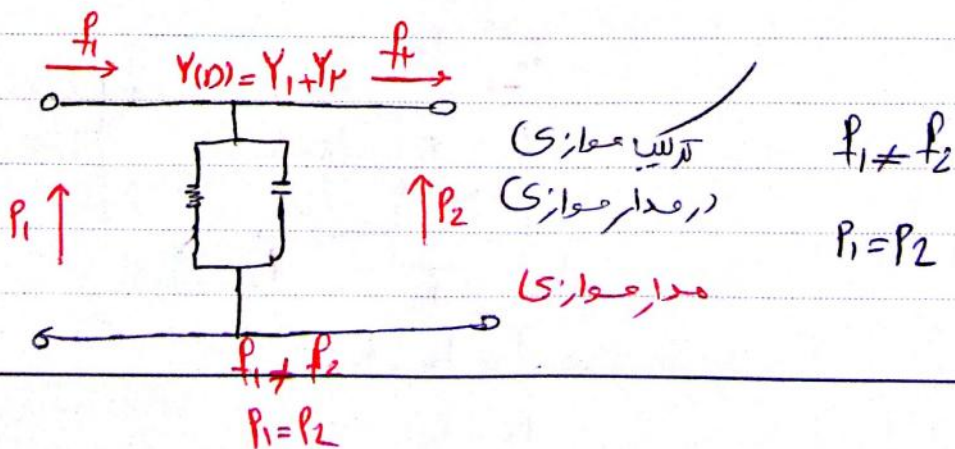 f₁
Y(D) = Y₁ + Y۲
f۲
P₁
P₂
ترکیب موازی
در مدار موازی
مدار موازی
f₁ ≠ f₂
P₁ = P₂
f₁ ≠ f₂
P₁ = P₂